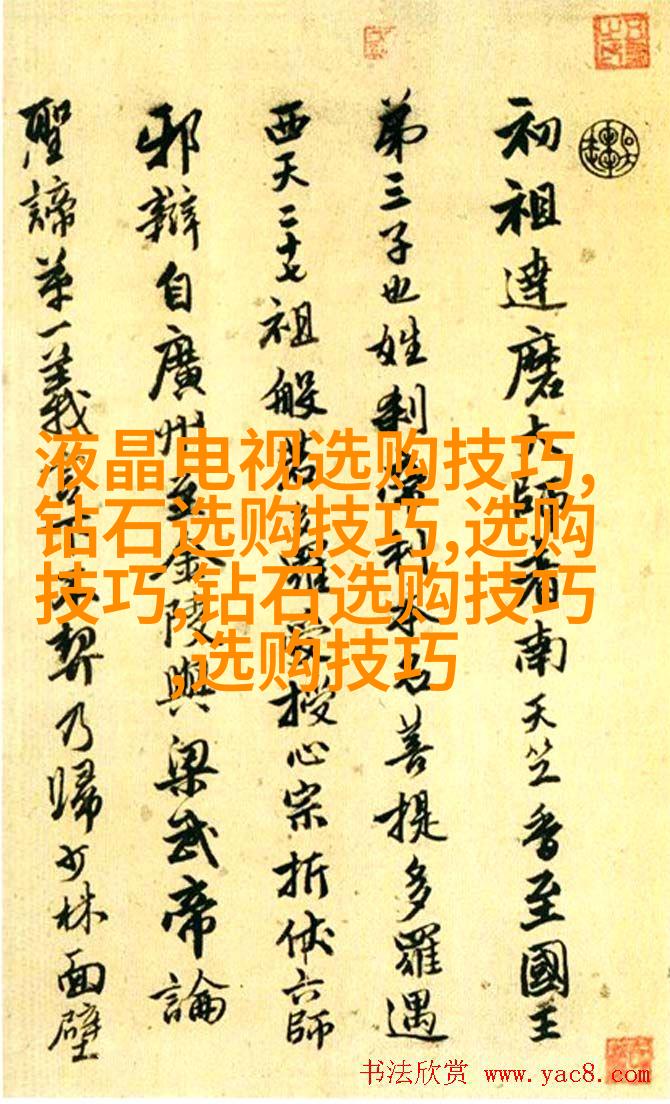 初祖達磨大師者南天竺香至國王
弟三子也姓刹帝利本名菩提多羅遇
西天二十七祖般若多羅授心宗折伏六師
邪辯自廣州至金陵與梁武帝論
聖諦苐一義不契乃歸少林面壁
液晶电视选购技巧,
钻石选购技巧,选购
技巧,钻石选购技巧
,选购技巧
书法欣赏 www.yac8.com